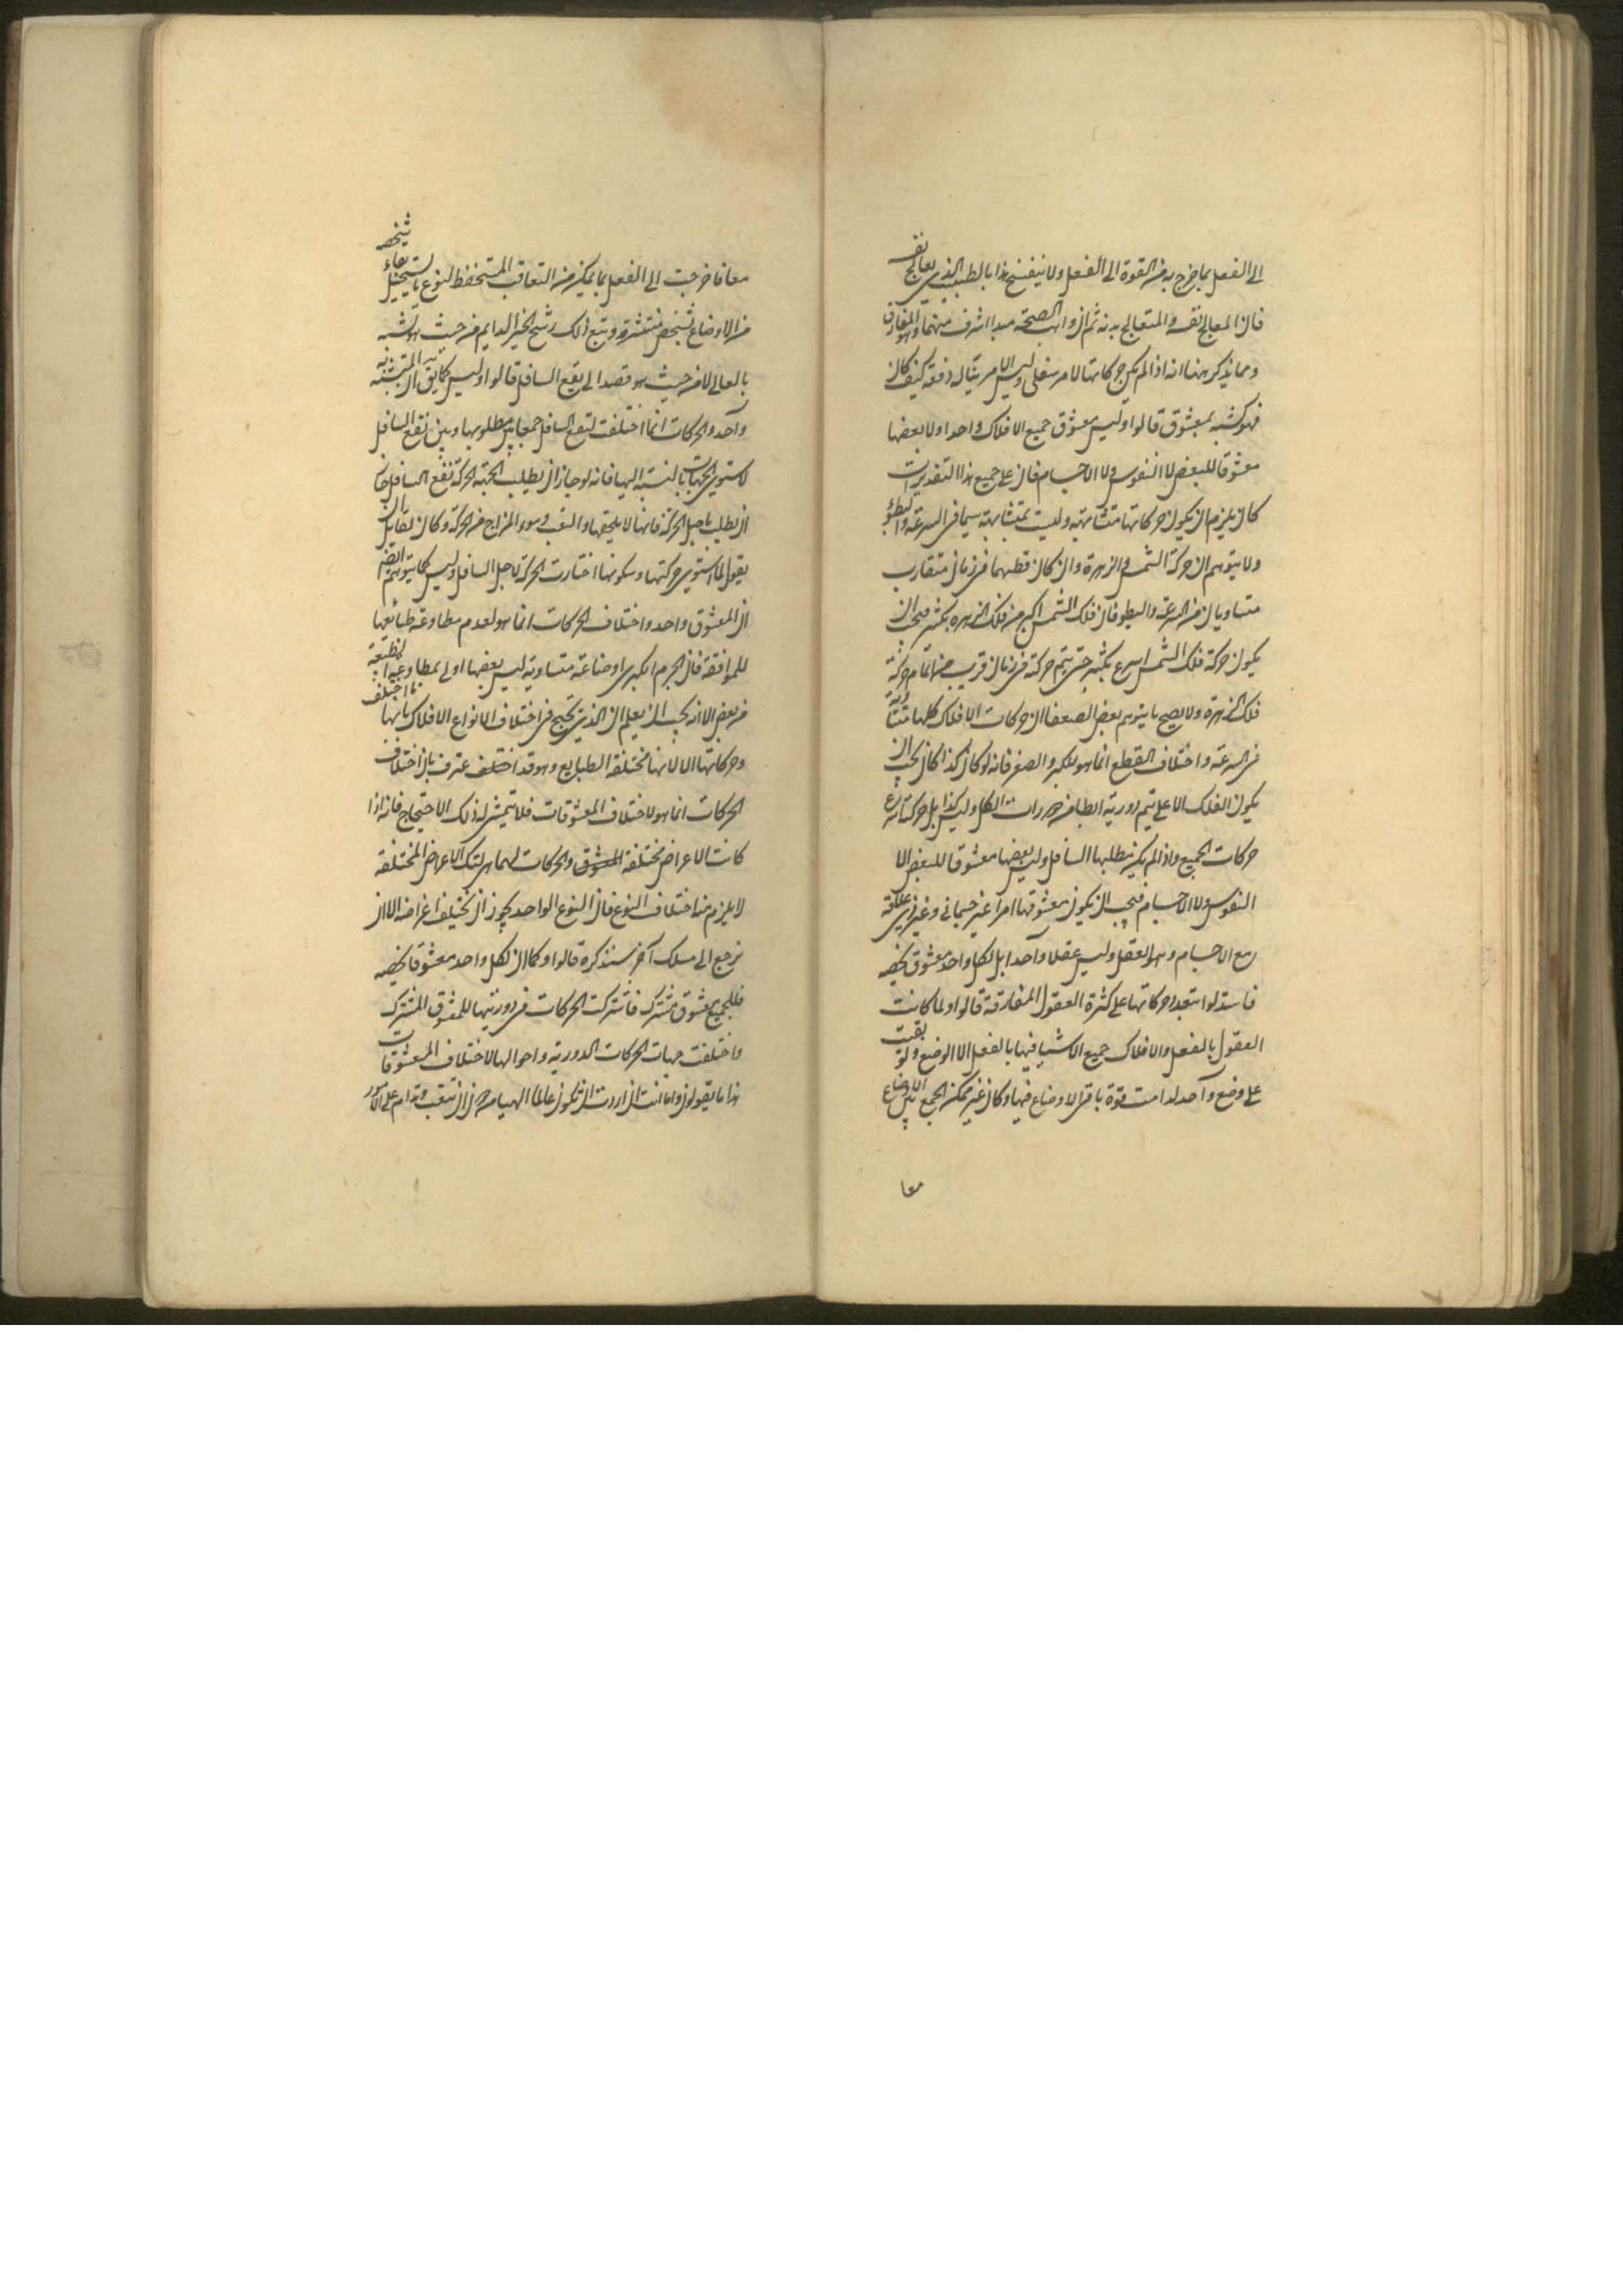 الى الفعل بما خرج به من القوة الى الفعل ولا ينفسخ هذا بالطبيب الذى يعالج نفسه
فان المعالج نفسه والمتعالج بدنه ثم ان واهب الصحة مبدا اشرف منهما وهو المفارق
ومما يذكر ههنا انه اذا لم يكن حركاتها لامر سفلى وليس الامر ينال دفعة كيف كان
فهو كتشبه بمعشوق قالوا وليس معشوق جميع الافلاك واحدا ولا بعضها
معشوقا للبعض لا النفوس ولا الاجسام فان على جميع هذا التقديرات
كان يلزم ان يكون حركاتها متشابهة وليست بمتشابهة سيما فى السرعة والبطؤ
ولا يتوهم ان حركة الشمس والزهرة وان كان قطبهما فى زمان متقارب
متساويان فى السرعة والبطو فان فلك الشمس اكبر من فلك الزهرة بكثير فيجب ان
يكون حركة فلك الشمس اسرع بكثير حتى يتم حركة فى زمان قريب من اتمام حركة
فلك الزهرة ولا يصح ما يتوهم بعض الضعفا ان حركات الافلاك كلها متشابهة
فى السرعة واختلاف القطع انما هو للكبر والصغر فانه لو كان كذا كان يجب ان
يكون الفلك الاعلى يتم دوريته ابطا من دورات الكل وليس كذا بل حركته اسرع
حركات الجميع واذا لم يكن مطلبها السافل وليس بعضها معشوقا للبعض لا
النفوس ولا الاجسام فيجب ان يكون معشوقها امرا غير جسمانى وغير ذى علاقة
مع الاجسام وهو العقل وليس عقلا واحدا بل لكل واحد معشوق يخصه
فاستدلوا بتعدد حركاتها على كثرة العقول المفارقة قالوا ولما كانت
العقول بالفعل والافلاك جميع الاشيا فيها بالفعل الا الوضع ولو بقيت
على وضع واحد لدامت قوة باقى الاوضاع فيها وكان غير ممكن الجمع بين الاوضاع
معا
معا فاخرجت الى الفعل بما يمكن من التعاقب المستحفظ لنوع ما يستحيل بقاء شخصه
من الاوضاع بشخص منتشرة ويتبع ذلك رشح الخير الدايم من حيث هو تشبه
بالعالى لا من حيث هو قصد الى نفع السافل قالوا وليس كما يق ان المتشبه به
واحد والحركات انما اختلفت لنفع السافل جمعا بين مطلوبها وبين نفع السافل
لاستوى الجهات بالنسبة اليها فانه لو جاز ان يطلب بجهة الحركة نفع السافل جاز
ان يطلب باصل الحركة فانها لا يلحقها والتعب وسوء المزاج من الحركة وكان لقايل ان
يقول لما استوى حركتها وسكونها اختارت الحركة لاجل السافل وليس كما يتوهم ايضا
ان المعشوق واحد واختلاف الحركات انما هو لعدم مطاوعة طبائعها
للموافقة فان الجرم الكبرى اوضاعه متساوية ليس بعضها اولى بمطاوعة الطبيعة
من بعض الا انه يجب ان يعلم ان الذى يحتج فى اختلاف الانواع الافلاك بانها ما اختلفت
وحركاتها الا لانها مختلفة الطبايع وهو قد اعترف بان اختلاف
الحركات انما هو لاختلاف المعشوقات فلا يتمشى له ذلك الاحتجاج فانه اذا
كانت الاعراض مختلفة والحركات لهما هى لتلك الاعراض المختلفة
لا يلزم منه اختلاف النوع فان النوع الواحد يجوز ان يختلف اغراضه الا ان
نرجع الى مسلك آخر سنذكره قالوا وكما ان لكل واحد معشوقا يخصه
فللجميع معشوق مشترك فاشتركت الحركات فى دوريتها للمعشوق المشترك
واختلفت جهات الحركات الدورية واحوالها لاختلاف المعشوقات
هذا ما يقولون واما انت ان اردت ان تكون عالما الهيا من دون ان تتعب وتداوم على الامور